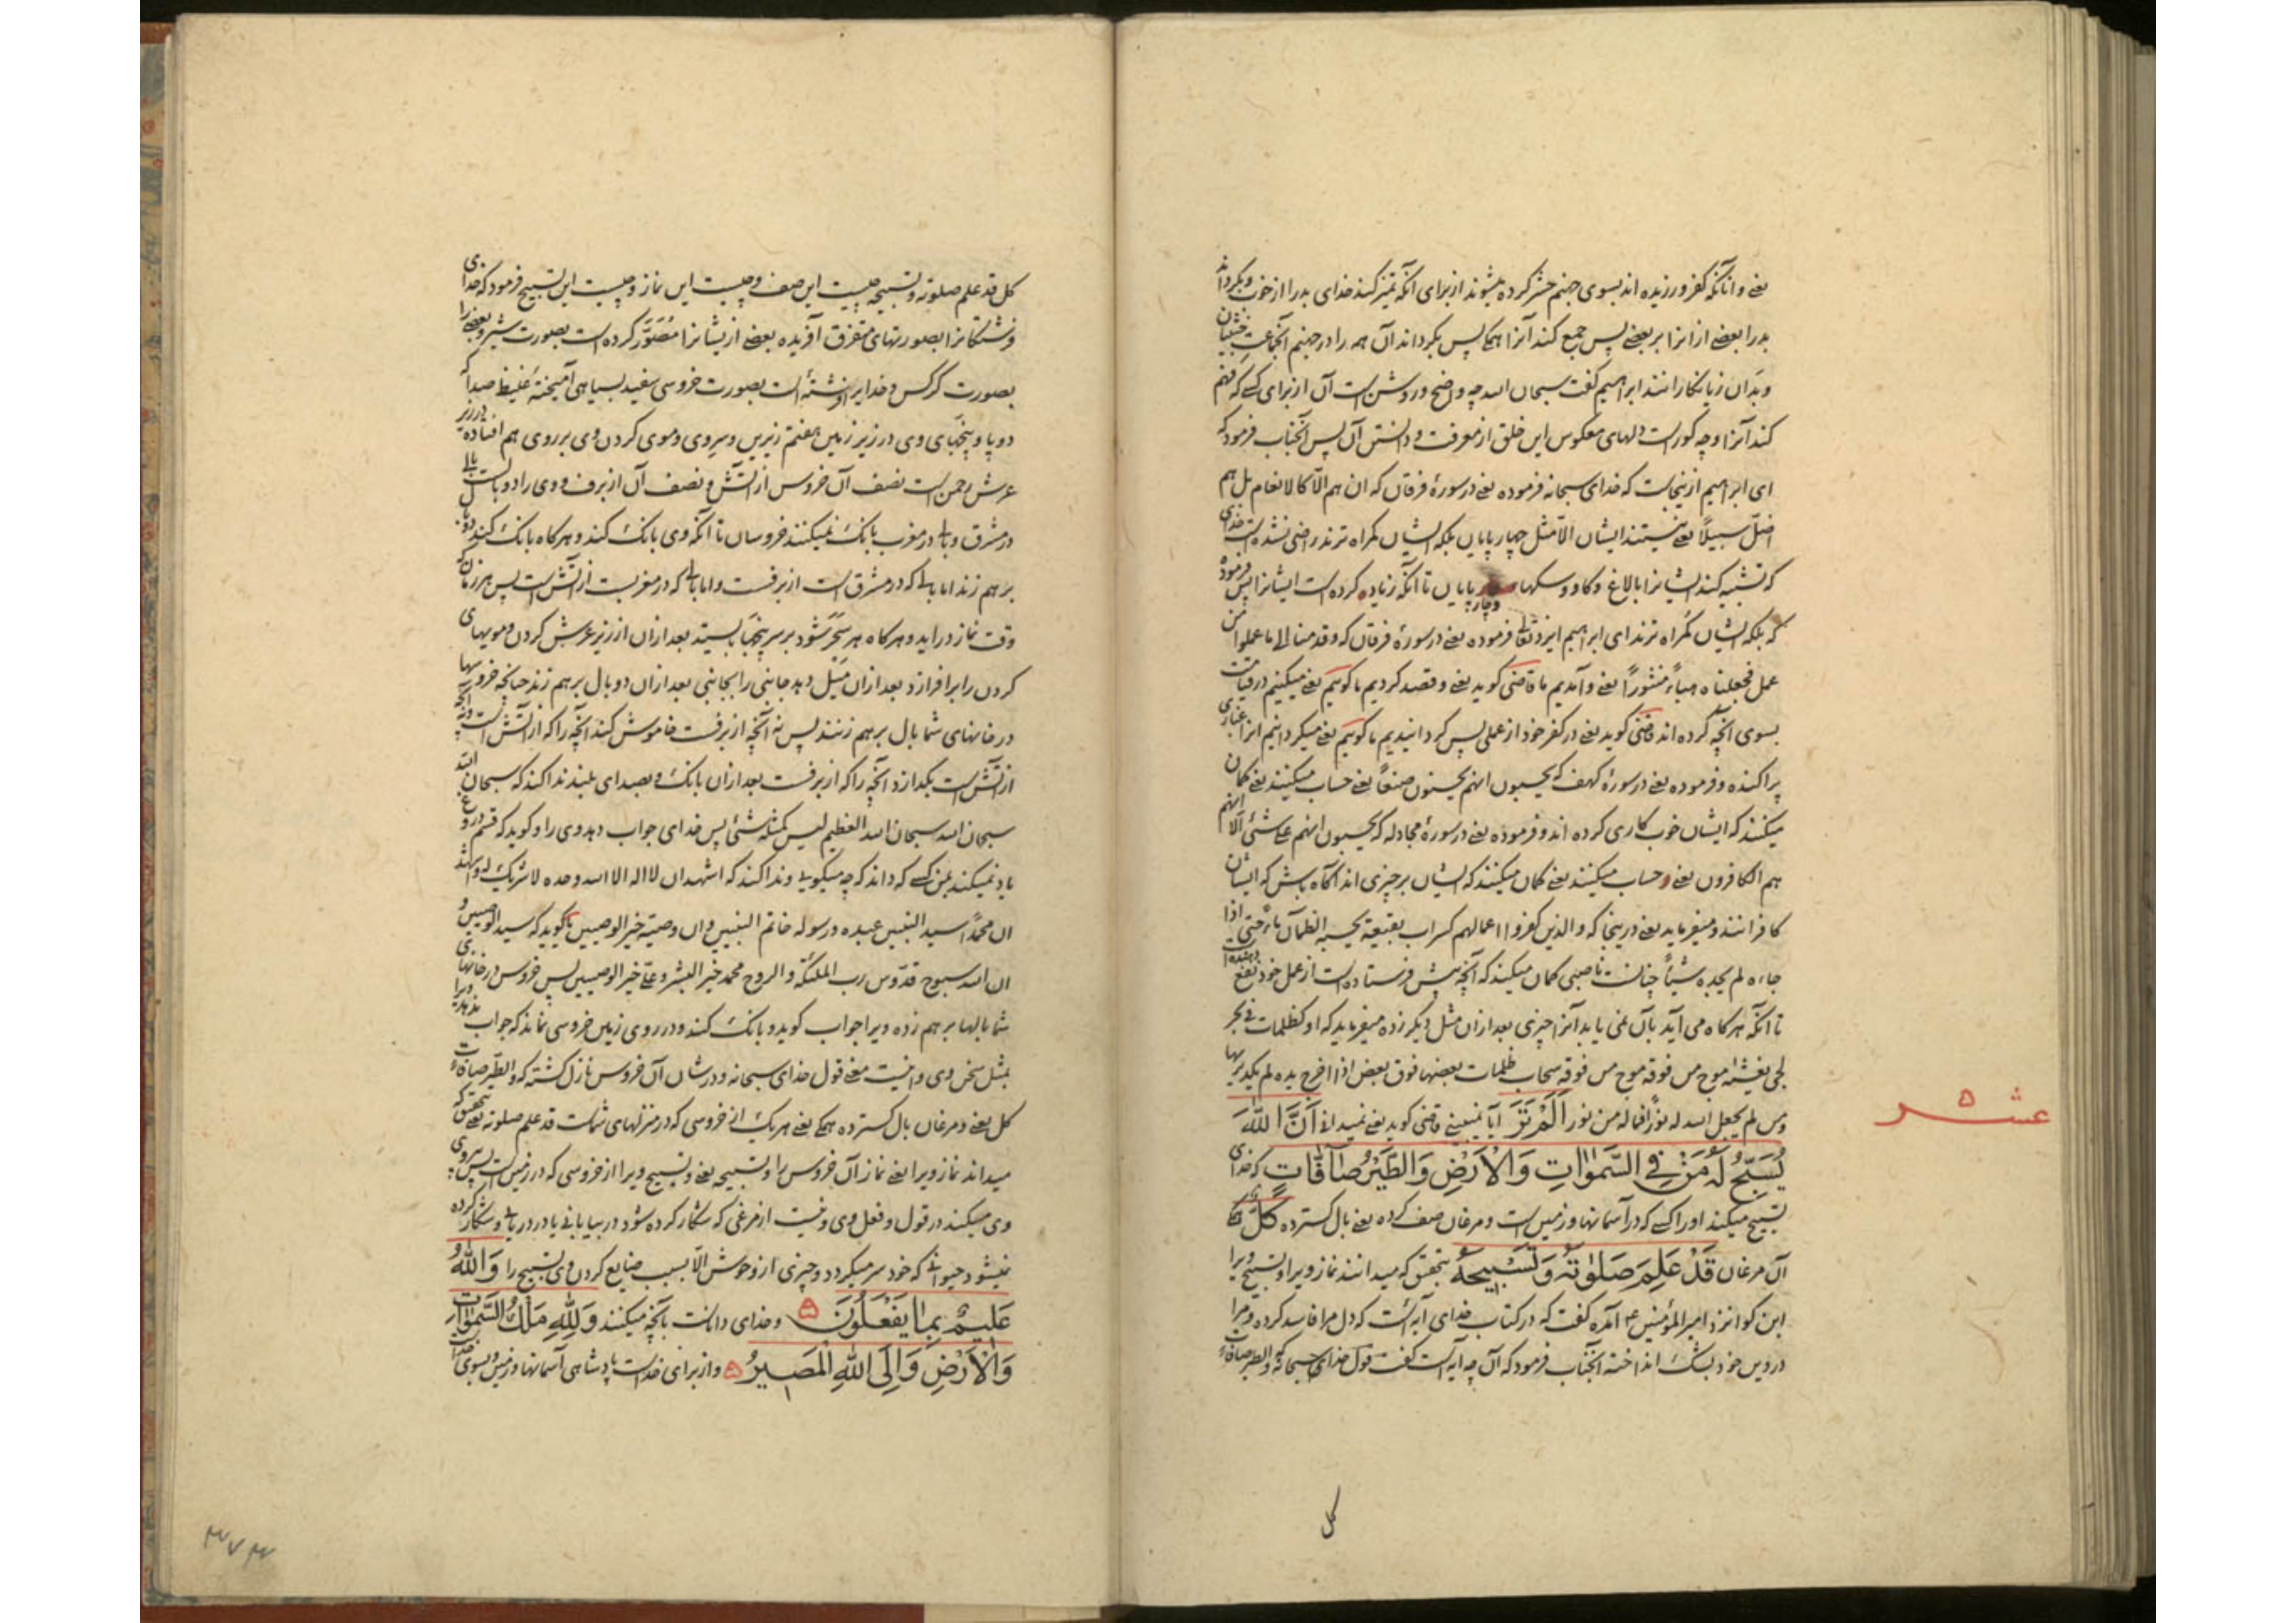 یعنے و آنانکه کفر ورزیده اند بسوی جهنم حشر کرده میشوند از برای آنکه تمیز کند خدای بد را از خوب و بگرداند
بد را بعضے از انرا بر بعضے پس جمع کند آنرا همگی پس بگرداند آن همه را در جهنم آنجماعت خبیثان
و بدان زیانکارانند ابراهیم گفت سبحان الله چه واضح و روشن است آن از برای کسے که فهم
کند آنرا و چه کور است دلهای معکوس این خلق از معرفت و دانستن آن پس آنجناب فرمود که
ای ابراهیم ازینجاست که خدای سبحانه فرموده یعنے در سورهٔ فرقان که ان هم الّا کالانعام بل هم
اضلّ سبیلًا یعنے نیستند ایشان الّا مثل چهارپایان بلکه ایشان گمراه ترند راضی نشده است خدای
که تشبیه کند ایشانرا بالاغ و گاو و سگها و چارپایان تا آنکه زیاده کرده است ایشانرا پس فرموده
که بلکه ایشان گمراه ترند ای ابراهیم ایزد تعالی فرموده یعنے در سورهٔ فرقان که و قدمنا الی ما عملوا من
عمل فجعلناه هباءً منثوراً یعنے و آمدیم ما قاضی گوید یعنے و قصد کردیم ما گوییم یعنے میکنیم در قیامت
بسوی آنچه کرده اند قاضی گوید یعنے در کفر خود از عملی پس گردانیدیم ما گوییم یعنے میگردانیم انرا غباری
پراکنده و فرموده یعنے در سورهٔ کهف که یحسبون انهم یحسنون صنعًا یعنے حساب میکنند یعنے گمان
میکنند که ایشان خوب کاری کرده اند و فرموده یعنے در سورهٔ مجادله که یحسبون انهم علی شئ الا انهم
هم الکافرون یعنے و حساب میکنند یعنے گمان میکنند که ایشان بر چیزی اند آگاه باش که ایشان
کافرانند و میفرماید یعنے درینجا که والذین کفروا اعمالهم کسراب بقیعة یحسبه الظمآن ماءً حتی اذا
جاءه لم یجده شیئاً چنانست ناصبی گمان میکند که آنچه پیش فرستاده است از عمل خود نفع دهنده است
تا آنکه هرگاه می آید بآن نمی یابد آنرا چیزی بعد ازان مثل دیگر زده میفرماید که او کظلمات فی بحر
لجی یغشیه موج من فوقه موج من فوقه سحاب ظلمات بعضها فوق بعض اذا اخرج یده لم یکد یریها
ومن لم یجعل الله له نوراً فما له من نور اَلَمْ تَرَ آیا نمیبینی قاضی گوید یعنے نمیدانی اَنَّ اللّٰهَ
یُسَبِّحُ لَهُ مَنْ فِی السَّمٰوَاتِ وَالْاَرْضِ وَالطَّیْرُ صَآفَّاتٍ که خدای
تسبیح میکند او را کسے که در آسمانها و زمین است و مرغان صف کرده یعنے بال گسترده کُلٌّ همگی
آن مرغان قَدْ عَلِمَ صَلٰوتَهُ وَتَسْبِیحَهُ بتحقیق که میدانند نماز ویرا و تسبیح ویرا
ابن کوا نزد امیر المؤمنین ع آمده گفت که در کتاب خدای آیه است که دل مرا فاسد کرده و مرا
در دین خود بشک انداخته آنجناب فرمود که آن چه آیه است گفت قول خدای سبحانه که والطیر صافات
عشر
کل
کل قد علم صلوته و تسبیحه چیست این صف و چیست این نماز و چیست این تسبیح فرمود که خدای
فرشتگانرا بصورتهای متفرق آفریده بعضے ازیشانرا مُصَوَّر کرده است بصورت شیر و بعضے را
بصورت کرکس و خدایرا فرشتهٔ است بصورت خروسی سفید بسیاهی آمیختهٔ غلیظ صدا که
دو پا و پنجهای وی در زیر زمین هفتم زیرین و سر وی و موی گردن وی بر روی هم افتاده در زیر
عرش رحمن است نصف آن خروس از آتش و نصف آن از برف و وی را دو بال است بالی
در مشرق و بالی در مغرب بانگ نمیکنند خروسان تا آنکه وی بانگ کند و هرگاه بانگ کند دو بال
بر هم زند اما بالی که در مشرق است از برفست و اما بالی که در مغربست از آتش است پس هر زمان که
وقت نماز در آید و هرگاه هر سَحَر شود بر سر پنجها بایستد بعد ازان از زیر عرش گردن و مویهای
گردن را بر افرازد بعد ازان میل دهد جانبی را بجانبی بعد ازان دو بال بر هم زند چنانچه خروسها
در خانهای شما بال بر هم زنند پس نه آنچه از برفست خاموش کند آنچه را که از آتش است و نه آنچه
از آتش است بگدازد آنچه را که از برفست بعد ازان بانگ و بصدای بلند ندا کند که سبحان الله
سبحان الله سبحان الله العظیم لیس کمثله شئ پس خدای جواب دهد وی را و گوید که قسم دروغ
یاد نمیکند بمن کسے که داند که چه میگویی و ندا کند که اشهد ان لا اله الا الله وحده لا شریک له و اشهد
ان محمدًا سید النبیین عبده و رسوله خاتم النبیین و ان وصیه خیر الوصیین یا گوید که سید الوصیین و
ان الله سبوح قدّوس رب الملئکة و الروح محمد خیر البشر و علی خیر الوصیین پس خروس در خانهای
شما بالها بر هم زده ویرا جواب گوید و بانگ کند و در روی زمین خروسی نماند که جواب ندهد ویرا
بمثل سخن وی و اینست معنی قول خدای سبحانه و در شان آن خروس نازل گشته که والطیر صافات
کل یعنے و مرغان بال گسترده همگی یعنے هر یک از خروسی که در منزلهای شماست قد علم صلوته یعنے بتحقیق که
میداند نماز ویرا یعنے نماز آن خروس را و تسبیحه یعنے و تسبیح ویرا از خروسی که در زمین است پس پیروی
وی میکند در قول و فعل وی و نیست از مرغی که شکار کرده شود در بیابانی یا در دریایی و شکار کرده
نمیشود حیوانی که خود سر میگردد و چیزی از وحوش الّا بسبب ضایع کردن وی تسبیح را وَاللّٰهُ
عَلِیمٌ بِمَا یَفْعَلُونَ و خدای داناست بآنچه میکنند وَلِلّٰهِ مُلْكُ السَّمٰوَاتِ
وَالْاَرْضِ وَاِلَی اللّٰهِ الْمَصِیرُ و از برای خداست پادشاهی آسمانها و زمین و بسوی خداست
۳۷۳